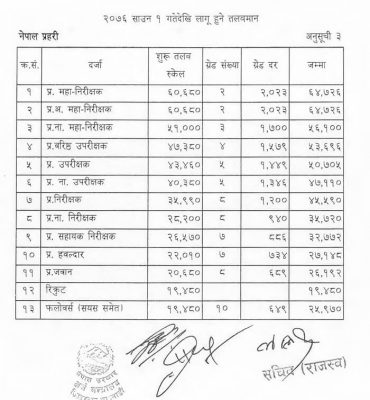 २०७६ साउन १ गतेदेखि लागू हुने तलवमान
नेपाल प्रहरी अनुसूची ३
क्र.सं. दर्जा शुरू तलव स्केल ग्रेड संख्या ग्रेड दर जम्मा
१ प्र. महा-निरीक्षक ६०,६८० २ २,०२३ ६४,७२६
२ प्र.अ. महा-निरीक्षक ६०,६८० २ २,०२३ ६४,७२६
३ प्र.ना. महा-निरीक्षक ५१,००० ३ १,७०० ५६,१००
४ प्र.वरिष्ठ उपरीक्षक ४७,३८० ४ १,५७९ ५३,६९६
५ प्र. उपरीक्षक ४३,४६० ५ १,४४९ ५०,७०५
६ प्र. ना. उपरीक्षक ४०,३८० ५ १,३४६ ४७,११०
७ प्र.निरीक्षक ३५,९९० ८ १,२०० ४५,५९०
८ प्र.ना. निरीक्षक २८,२०० ८ ९४० ३५,७२०
९ प्र. सहायक निरीक्षक २६,५७० ७ ८८६ ३२,७७२
१० प्र. हवल्दार २२,०१० ७ ७३४ २७,१४८
११ प्र.जवान २०,६८० ८ ६८९ २६,१९२
१२ रिक्रुट १९,४८० १९,४८०
१३ फलोवर्स (सयस समेत) १९,४८० १० ६४९ २५,९७०
सचिव (राजस्व)